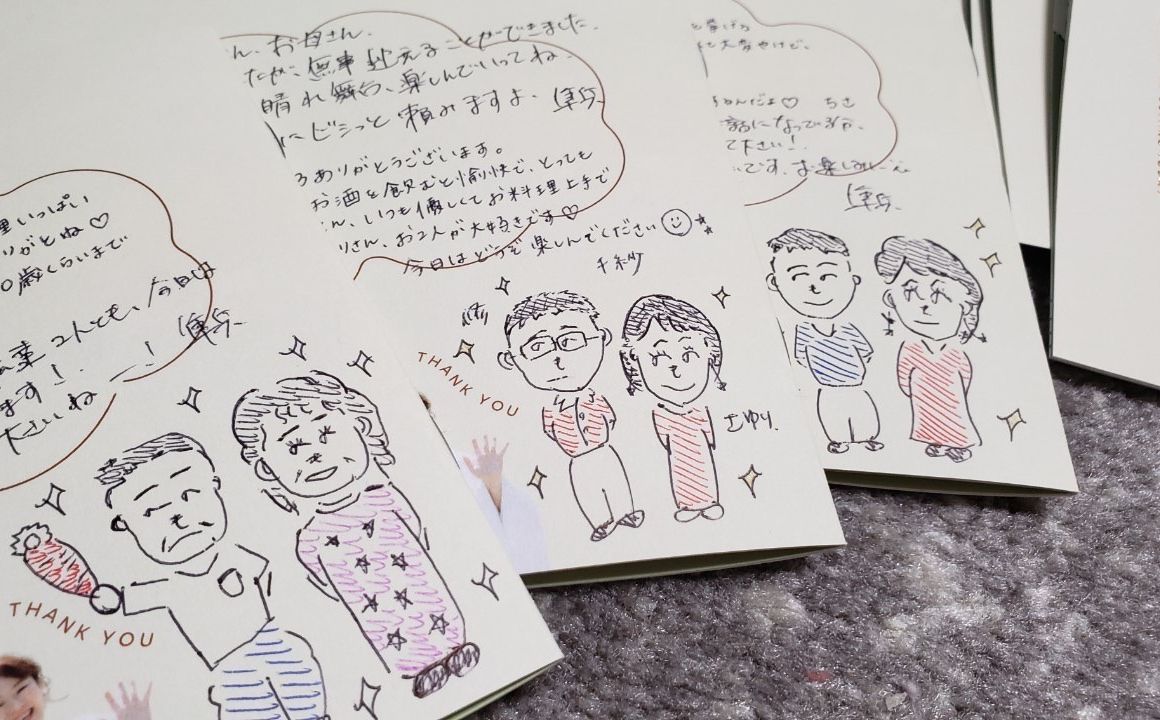 里いっぱい
りがとね♡
0歳くらいまで
2人とも、今日は
ます！！
下さいね
隼兵
THANK YOU
ん、お母さん、
たが、無事迎えることができました。
晴れ舞台、楽しんでいってね
にビシっと頼みますよ、隼兵
ありがとうございます。
お酒を飲むと愉快で、とっても
ん、いつも優しくてお料理上手で
りさん、お2人が大好きです♡
今日はどうぞ楽しんでください
千紗
THANK YOU
さゆり
と挙げる
に大変やけど、
るんだよ♡ ちさ
話になっている方、
て下さい！
いです、お楽しみに〜
隼兵